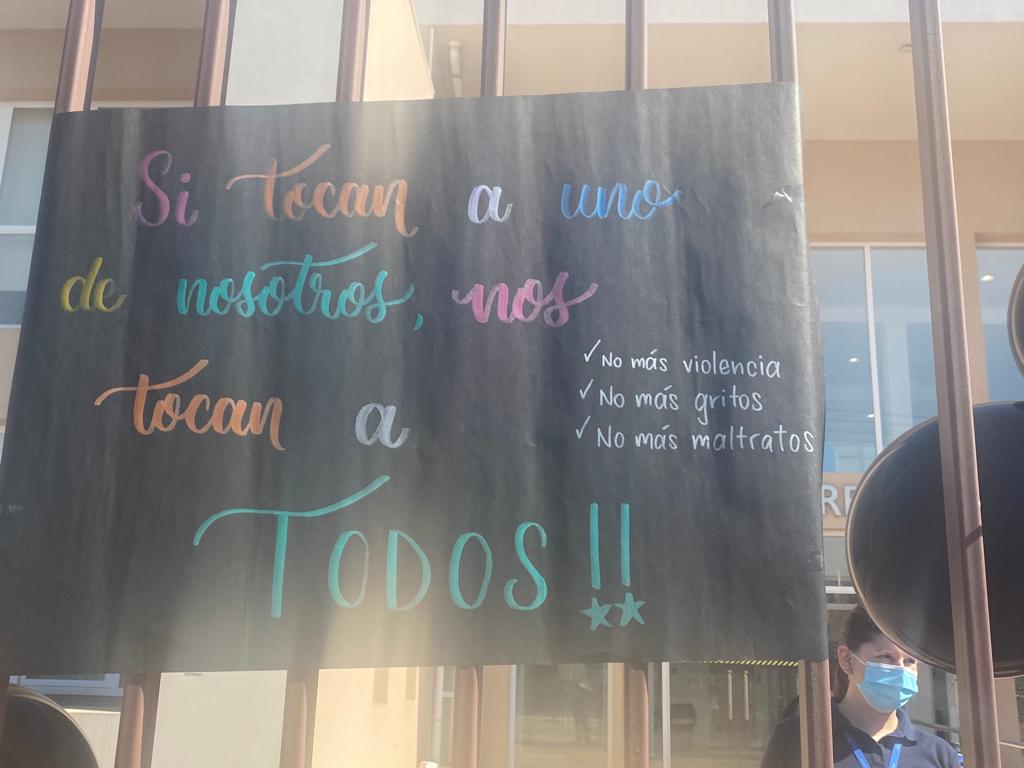 Si tocan a uno
de nosotros, nos
tocan a
TODOS!!
✓No más violencia
✓No más gritos
✓No más maltratos